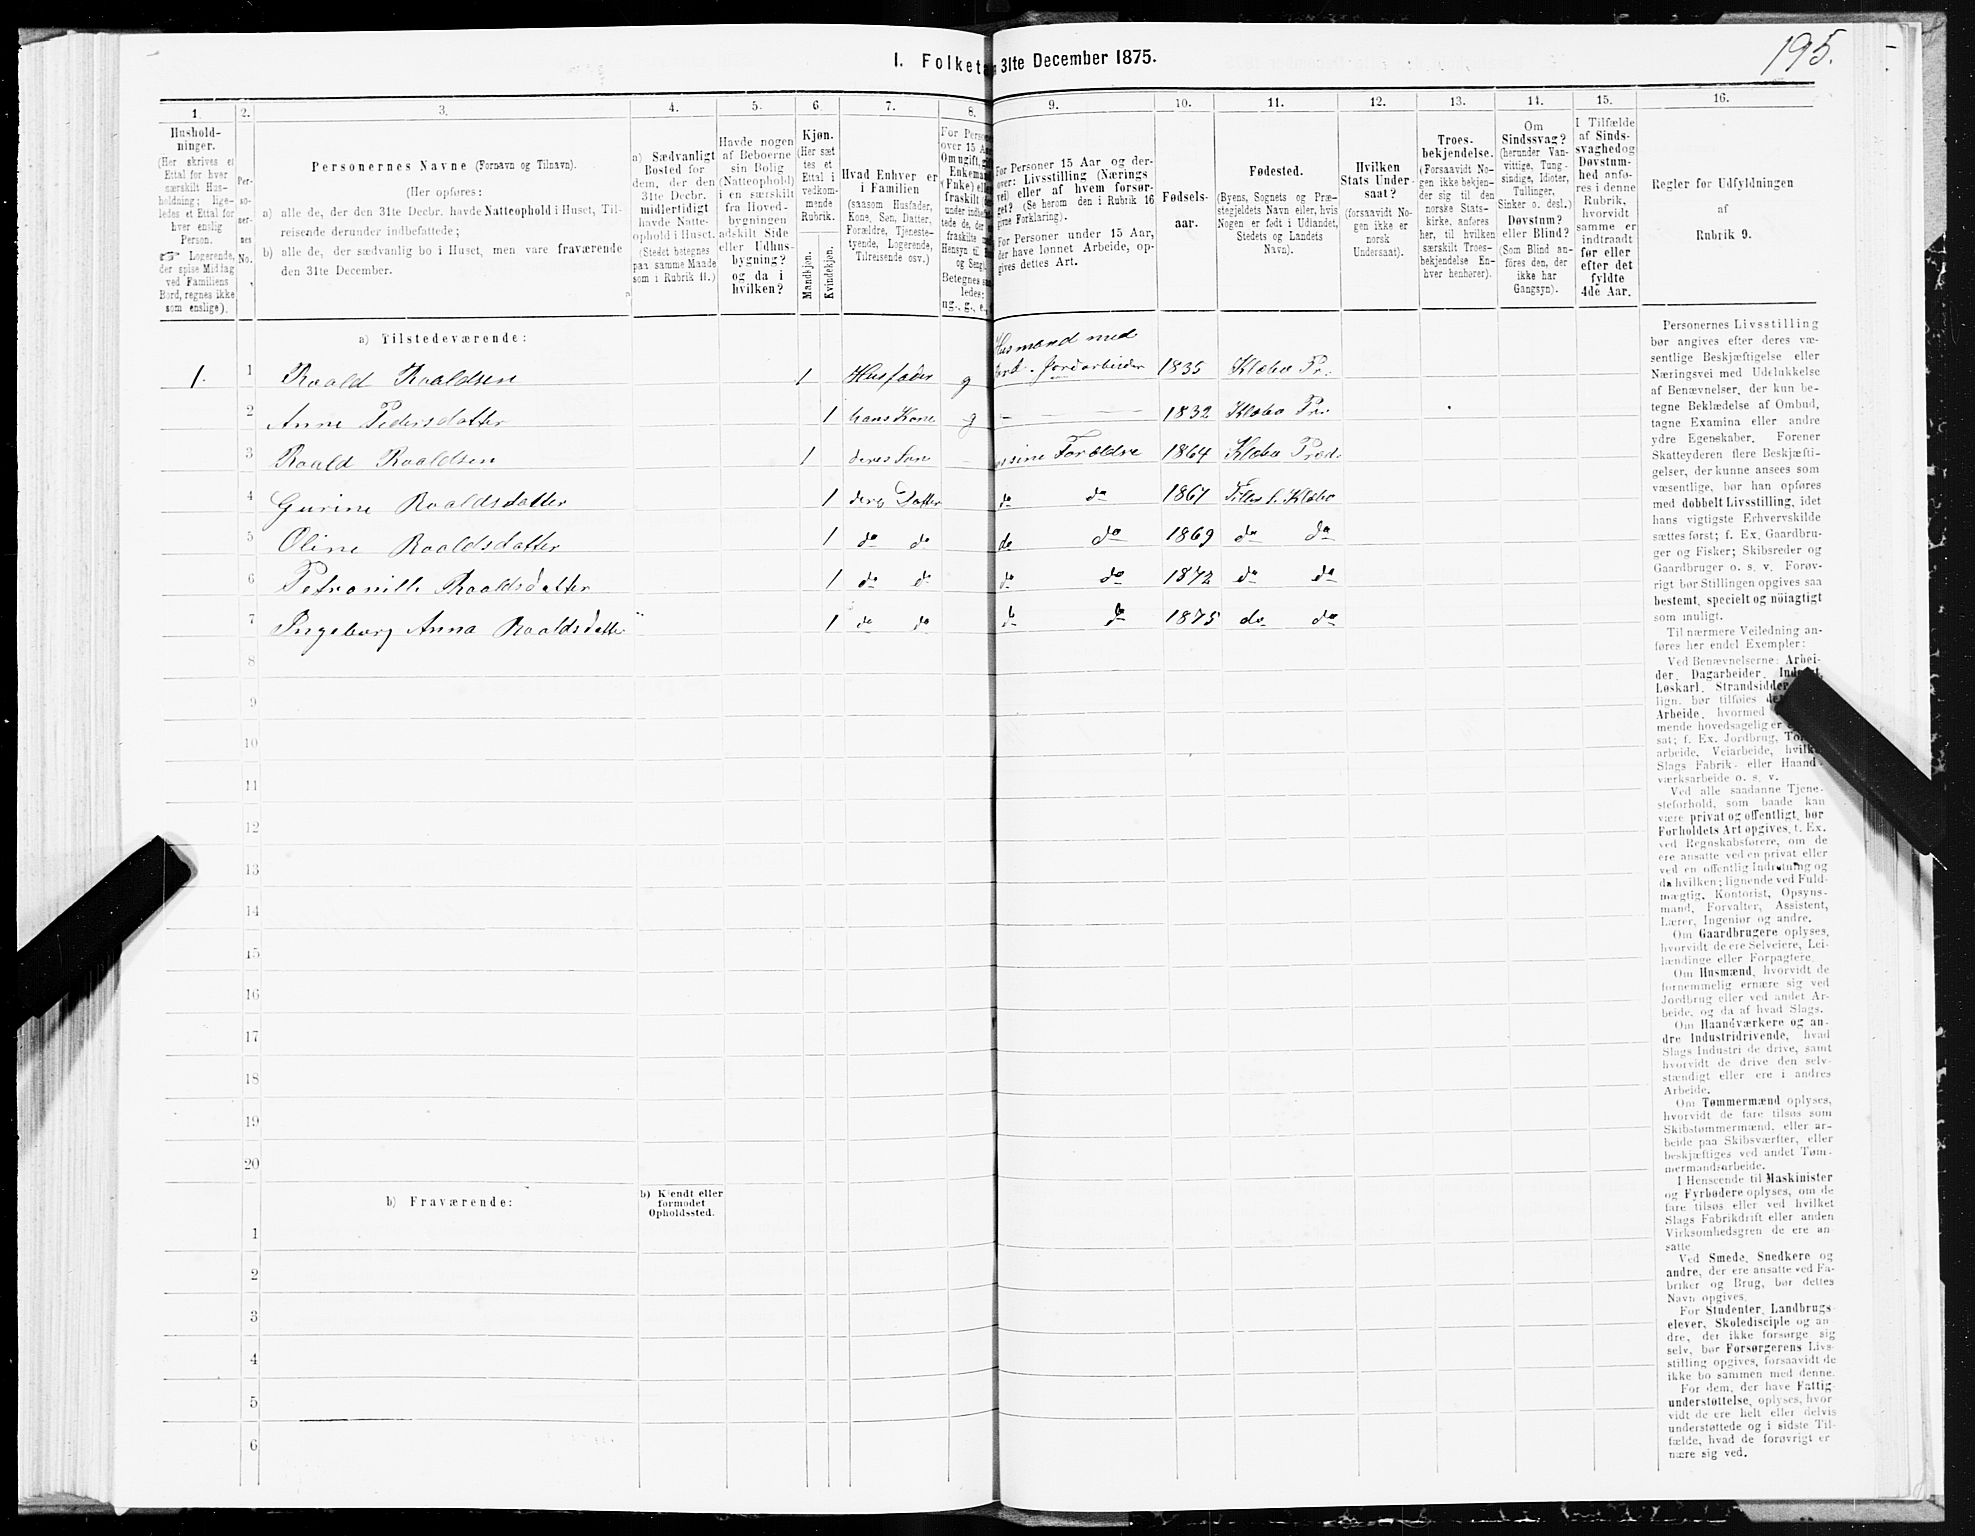 195.
I. Folket 31te December 1875.
1. 2. 3. 4. 5. 6. 7. 8. 9. 10. 11. 12. 13. 14. 15. 16.
Hushold-
ninger.
(Her skrives et
Ettal for hver
særskilt Hus-
holdning; lige-
ledes et Ettal for
hver enslig
Person.
Logerende,
der spise Middag
ved Familiens
Bord, regnes ikke
som enslige).
Per-
so-
ner-
nes
No.
Personernes Navne (Fornavn og Tilnavn).
(Her opføres:
a) alle de, der den 31te Decbr. havde Natteophold i Huset, Til-
reisende derunder indbefattede;
b) alle de, der sædvanlig bo i Huset, men vare fraværende
den 31te December.
a) Sædvanligt
Bosted for
dem, der den
31te Decbr.
midlertidigt
havde Natte-
ophold i Huset.
(Stedet betegnes
paa samme Maade
som i Rubrik 11.)
Havde nogen
af Beboerne
sin Bolig
(Natteophold)
i en særskilt
fra Hoved-
bygningen
adskilt Side
eller Udhus-
bygning?
og da i
hvilken?
Kjøn.
(Her sæt
tes et
Ettal i
vedkom-
mende
Rubrik.
Mandkjøn.
Kvindekjøn.
Hvad Enhver er
i Familien
(saasom Husfader,
Kone, Søn, Datter,
Forældre, Tjeneste-
tyende, Logerende,
Tilreisende osv.)
For Person
over 15 Aa
Om ugift, gi
Enkeman
(Enke) elle
fraskilt
under indbe
tede de, der
fraskilte
Hensyn til
og Seng).
Betegnes
ledes:
ug., g., e.,
For Personer 15 Aar og der-
over: Livsstilling (Nærings
vei) eller af hvem forsør-
get? (Se herom den i Rubrik 16
givne Forklaring).
For Personer under 15 Aar,
der have lønnet Arbeide, op-
gives dettes Art.
Fødsels-
aar.
Fødested.
(Byens, Sognets og Præ-
stegjeldets Navn eller, hvis
Nogen er født i Udlandet,
Stedets og Landets
Navn).
Hvilken
Stats Under-
saat?
(forsaavidt No-
gen ikke er
norsk
Undersaat).
Troes-
bekjendelse.
(Forsaavidt No-
gen ikke bekjen-
der sig til den
norske Stats-
kirke, anføres
her, til hvilken
særskilt Troes-
bekjendelse En-
hver henhører).
Om
Sindssvag?
(herunder Van-
vittige, Tung-
sindige, Idioter,
Tullinger,
Sinker o. desl.)
Døvstum?
eller Blind?
(Som Blind an-
føres den, der
ikke har
Gangsyn).
I Tilfælde
af Sinds-
svaghed og
Døvstum-
hed anfø-
res i denne
Rubrik,
hvorvidt
samme er
indtraadt
før eller
efter det
fyldte
4de Aar.
Regler for Udfyldningen
af
Rubrik 9.
a) Tilstedeværende:
Husmand med
1. 1 Roald Roaldsen 1 Husfader g Jord. Jordarbeider 1835 Klæbo Pr.
2 Anne Pedersdatter 1 hans Kone g — 1832 Klæbo Pr.
3 Roald Roaldsen 1 deres Søn — sine Forældre 1864 Klæbo Præd.
4 Gurine Roaldsdatter 1 deres Datter do do 1867 Tiller S. Klæbo
5 Oline Roaldsdatter 1 do do do do 1869 do do
6 Petronille Roaldsdatter 1 do do do do 1872 do do
7 Ingeborg Anna Roaldsdatter 1 do do do do 1875 do do
8
9
10
11
12
13
14
15
16
17
18
19
20
b) Fraværende:
b) Kjendt eller
formodet
Opholdssted.
1
2
3
4
5
6
Personernes Livsstilling
bør angives efter deres væ-
sentlige Beskjæftigelse eller
Næringsvei med Udelukkelse
af Benævnelser, der kun be-
tegne Beklædelse af Ombud,
tagne Examina eller andre
ydre Egenskaber. Forener
Skatteyderen flere Beskjæfti-
gelser, der kunne ansees som
væsentlige, bør han opføres
med dobbelt Livsstilling, idet
hans vigtigste Erhvervskilde
sættes først; f. Ex. Gaardbru-
ger og Fisker; Skibsreder og
Gaardbruger o. s. v. Forøv-
rigt bør Stillingen opgives saa
bestemt, specielt og nöiagtigt
som muligt.
Til nærmere Veiledning an-
føres her endel Exempler:
Ved Benævnelserne: Arbei-
der, Dagarbeider, Inderst,
Løskarl, Strandsidder
lign. bør tilføies det
Arbeide, hvormed
mende hovedsagelig er
sat; f. Ex. Jordbrug, Tom
arbeide, Veiarbeide, hvilke
Slags Fabrik- eller Haand-
værksarbeide o. s. v.
Ved alle saadanne Tjene-
steforhold, som baade kan
være privat og offentligt, bør
Forholdets Art opgives, t. Ex.
ved Regnskabsførere, om de
ere ansatte ved en privat eller
ved en offentlig Indretning og
da hvilken; lignende ved Fuld-
mægtig, Kontorist, Opsyns-
mand, Forvalter, Assistent,
Lærer, Ingeniør og andre.
Om Gaardbrugere oplyses,
hvorvidt de ere Selveiere, Lei-
lændinge eller Forpagtere.
Om Husmænd, hvorvidt de
fornemmelig ernære sig ved
Jordbrug eller ved andet Ar-
beide, og da af hvad Slags.
Om Haandværkere og an-
dre Industridrivende, hvad
Slags Industri de drive, samt
hvorvidt de drive den selv-
stændigt eller ere i andres
Arbeide.
Om Tømmermænd oplyses,
hvorvidt de fare tilsøs som
Skibstømmermænd, eller ar-
beide paa Skibsværfter, eller
beskjæftiges ved andet Tøm-
mermandsarbeide.
I Henseende til Maskinister
og Fyrbødere oplyses, om de
fare tilsøs eller ved hvilket
Slags Fabrikdrift eller anden
Virksomhedsgren de ere an
satte
Ved Smede, Snedkere og
andre, der ere ansatte ved Fa-
briker og Brug, bør dettes
Navn opgives.
For Studenter, Landbrugs-
elever, Skoledisciple og an-
dre, der ikke forsørge sig
selv, bør Forsørgerens Livs-
stilling opgives, forsaavidt de
ikke bo sammen med denne.
For dem, der have Fattig-
understøttelse, oplyses, hvor
vidt de ere helt eller delvis
understøttede og i sidste Til-
fælde, hvad de forøvrigt er
nære sig ved.